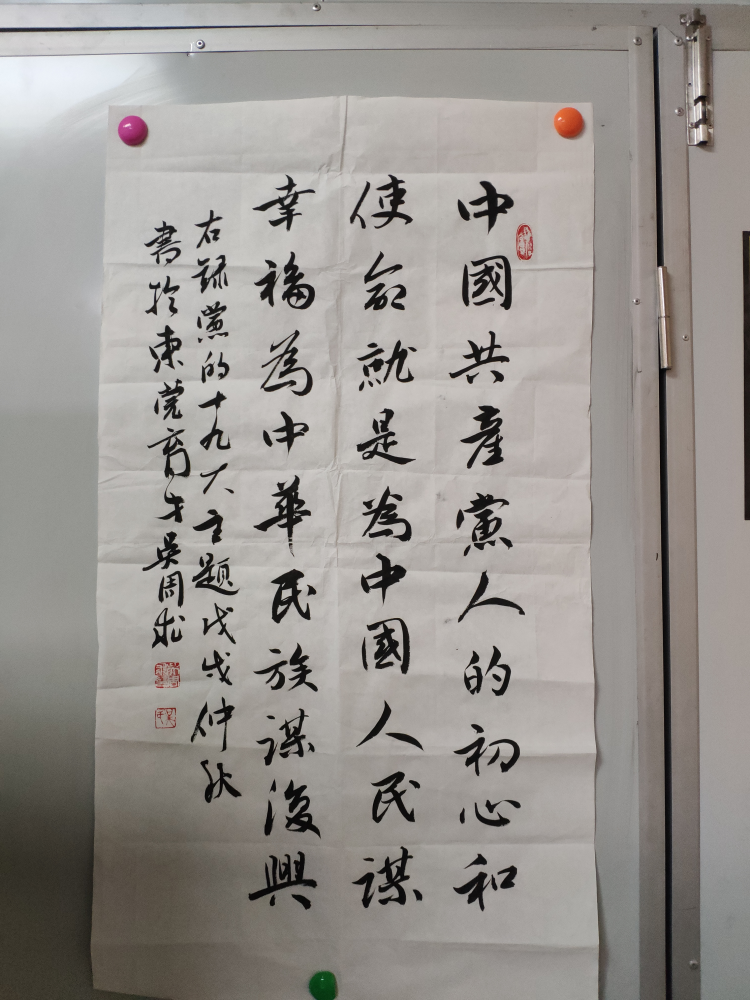 中國共產黨人的初心和
使命就是為中國人民謀
幸福為中華民族謀復興
右録黨的十九大主題戊戌仲秋
書於東莞育才吳周